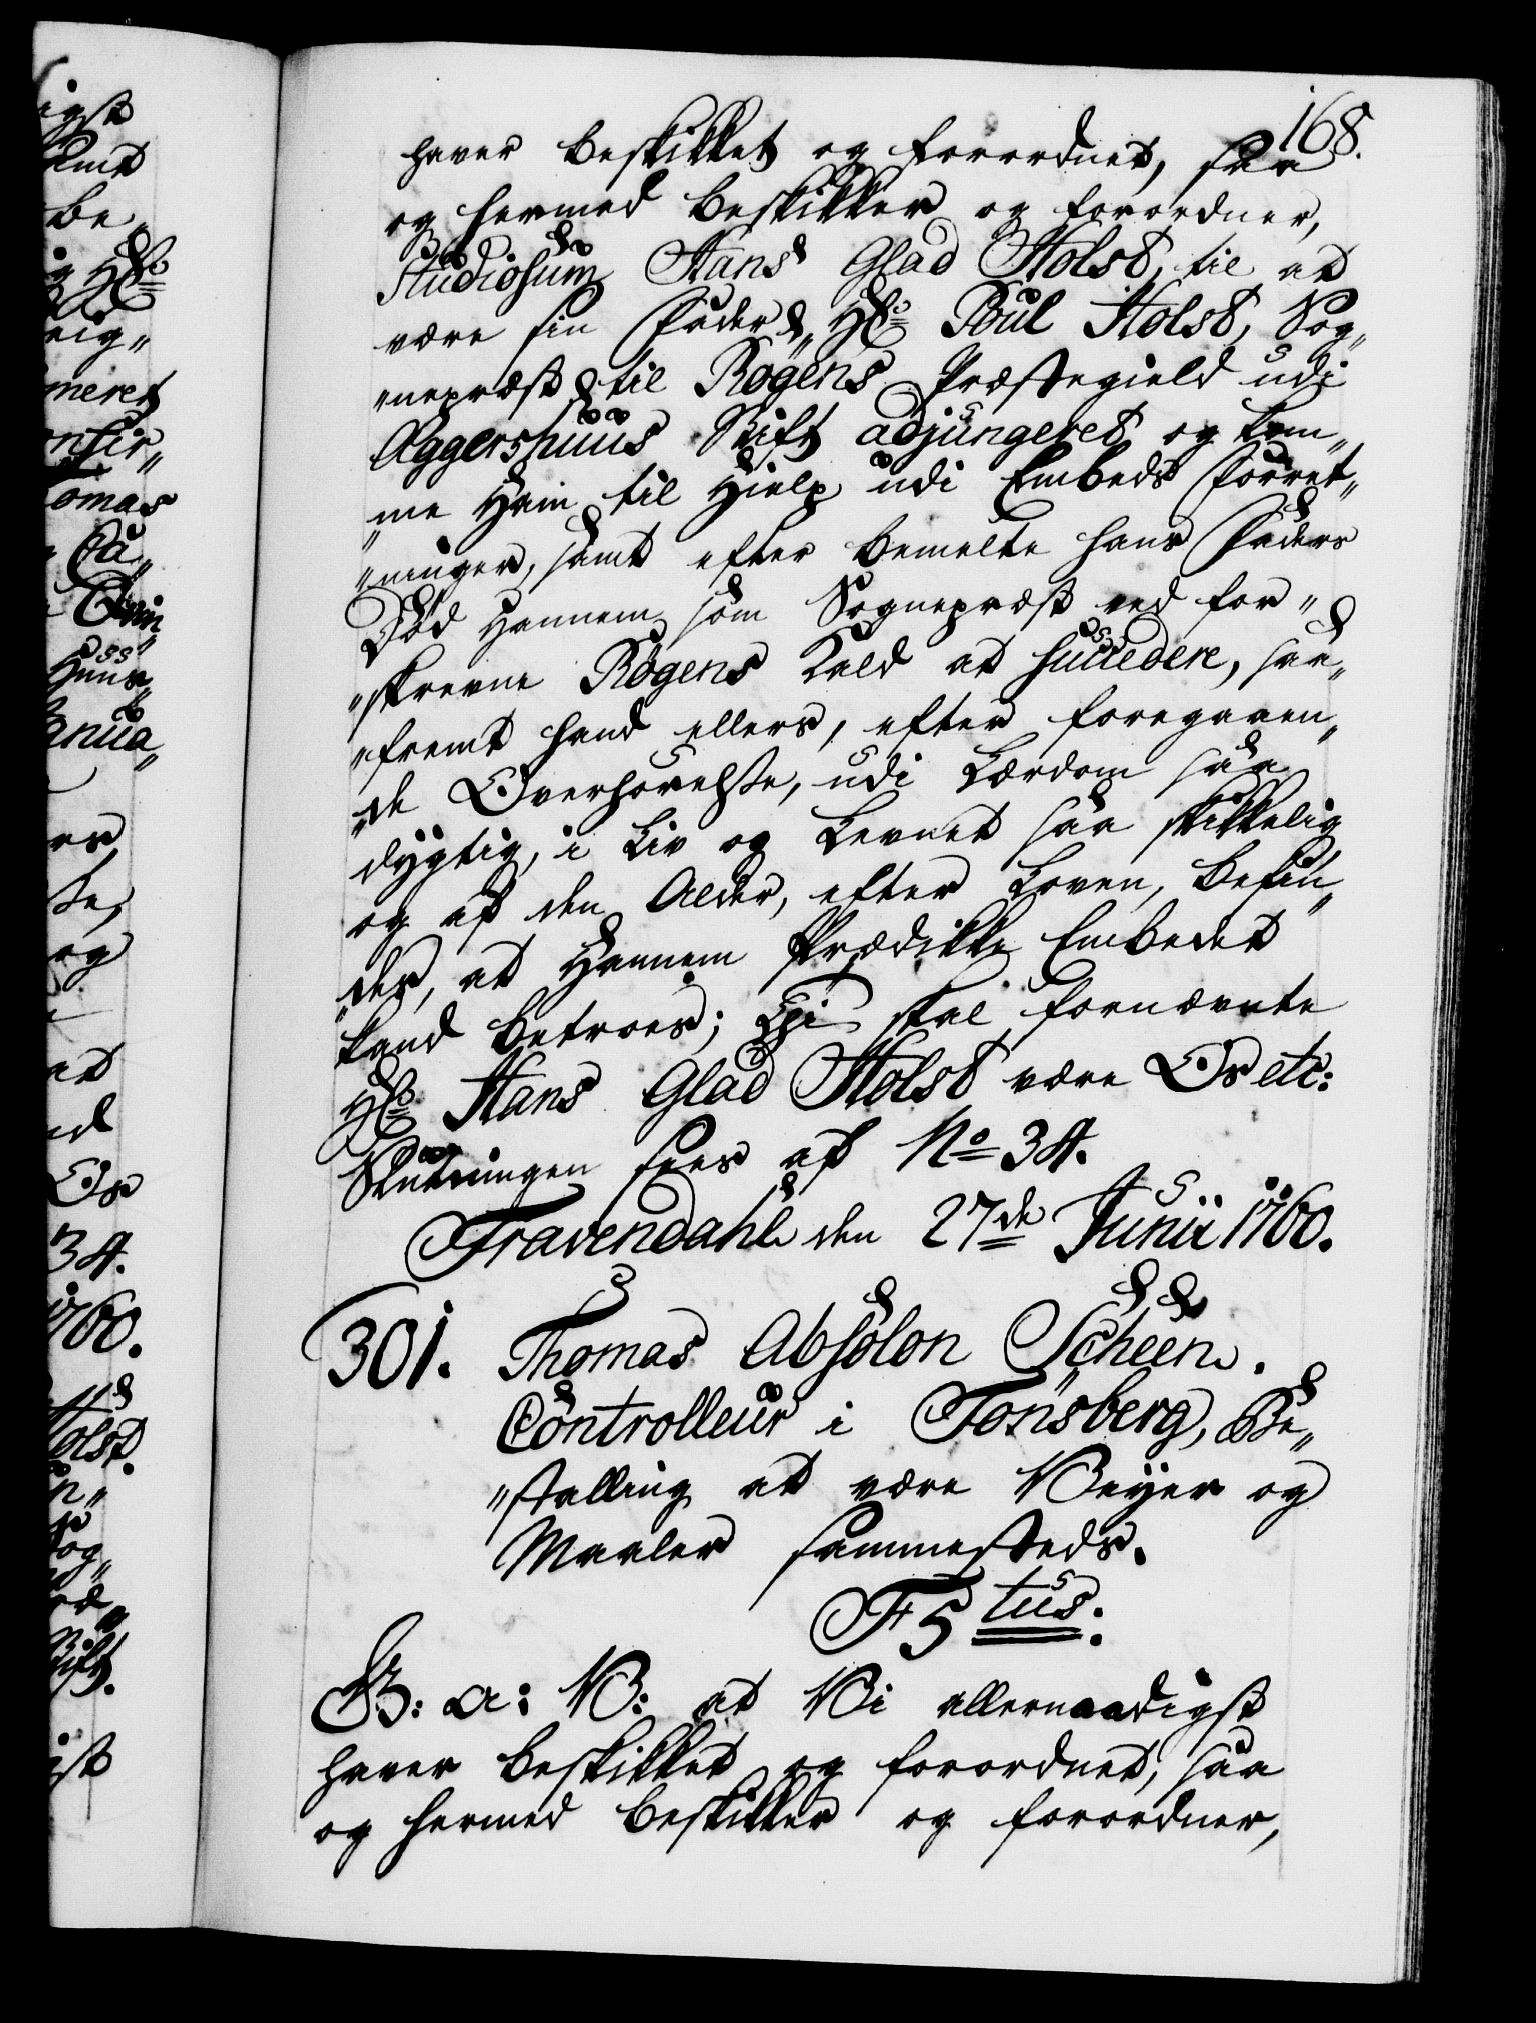 168.
haver beskikket og forordnet, saa
og hermed beskikker og forordner,
Studiosum Hans Glad Holst, til at
være sin Fader, Hr: Poul Holst, Sog„
„nepræst til Røgens Præstegield udi
Aggershuus Stift adjungeret og kom„
„me Ham til Hielp udi Embeds Forret„
„ninger, samt efter bemelte hans Faders
Død Hannem som Sognepræst ved for„
„skrevne Røgens Kald at succedere, saa„
„fremt hand ellers, efter foregaaen„
„de Overhørelse, udi Lærdom saa
dygtig, i Liv og Levnet saa skikkelig
og af den Alder, efter Loven, befin„
„des, at Hannem Prædikke Embedet
kand betroes; Thi skal fornævnte
Hr: Hans Glad Holst være Os etc:
Slutningen sees af No 34.
Travendahl den 27de Junii 1760.
301. Thomas Absolon Scheen.
Controlleur i Tønsberg, Be„
„stalling at være Veyer og
Maaler sammesteds.
F 5tus.
G: a: V: at Vi allernaadigst
haver beskikket og forordnet, saa
og hermed beskikker og forordner,